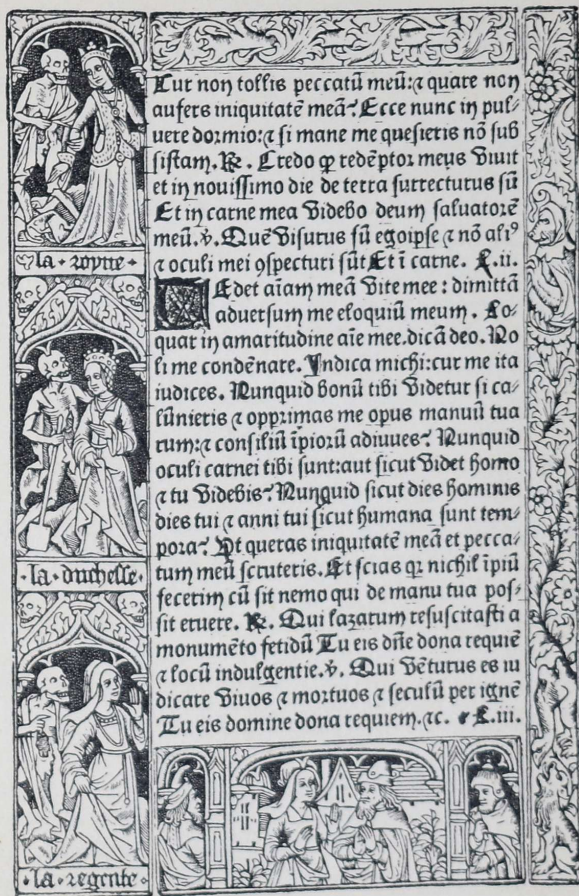 Cur non tollis peccatū meū:⁊ quare non
aufers iniquitatē meā? Ecce nunc in pul-
uere dormio:⁊ si mane me quesieris nō sub
sistam. ℟. Credo ꝙ redēptor meus viuit
et in nouissimo die de terra surrecturus sū
Et in carne mea videbo deum saluatorē
meū. ℣. Quē visurus sū egoipse ⁊ nō aliꝰ
⁊ oculi mei ꝯspecturi sūt Et ī carne. L.ii.
TEdet aīam meā vite mee : dimittā
aduersum me eloquiū meum. Lo-
quar in amaritudine aīe mee. dicā deo. No
li me condēnare. Indica michi:cur me ita
iudices. Nunquid bonū tibi videtur si ca-
lūnieris ⁊ opprimas me opus manuū tua
rum:⁊ consiliū īpiorū adiuues? Nunquid
oculi carnei tibi sunt:aut sicut videt homo
⁊ tu videbis? Nunquid sicut dies hominis
dies tui ⁊ anni tui sicut humana sunt tem-
pora? Ut queras iniquitatē meā et pecca-
tum meū scruteris. Et scias qꝛ nichil īpiū
fecerim cū sit nemo qui de manu tua pos-
sit eruere. ℟. Qui lazarum resuscitasti a
monumēto fetidū Tu eis dn̄e dona requiē
⁊ locū indulgentie. ℣. Qui vēturus es iu
dicare viuos ⁊ mortuos ⁊ seculū per ignē
Tu eis domine dona requiem. ⁊c. L.iii.
la royne
la duchesse
la regente